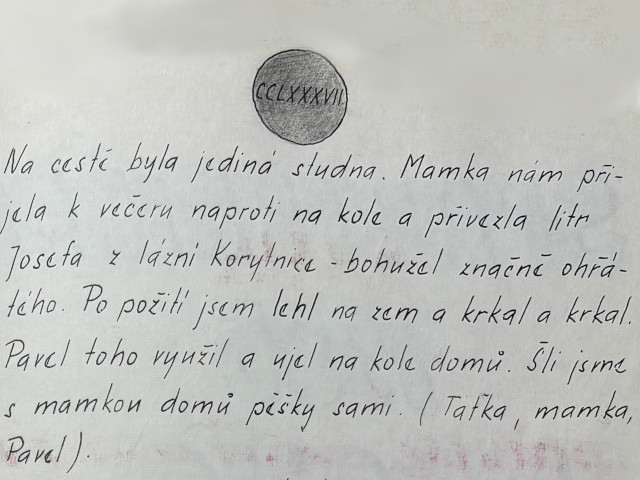 CCLXXXVII.
Na cestě byla jediná studna. Mamka nám při-
jela k večeru naproti na kole a přivezla litr
Josefa z lázní Korytnice - bohužel značně ohřá-
tého. Po požití jsem lehl na zem a krkal a krkal.
Pavel toho využil a ujel na kole domů. Šli jsme
s mamkou domů pěšky sami. (Taťka, mamka,
Pavel).